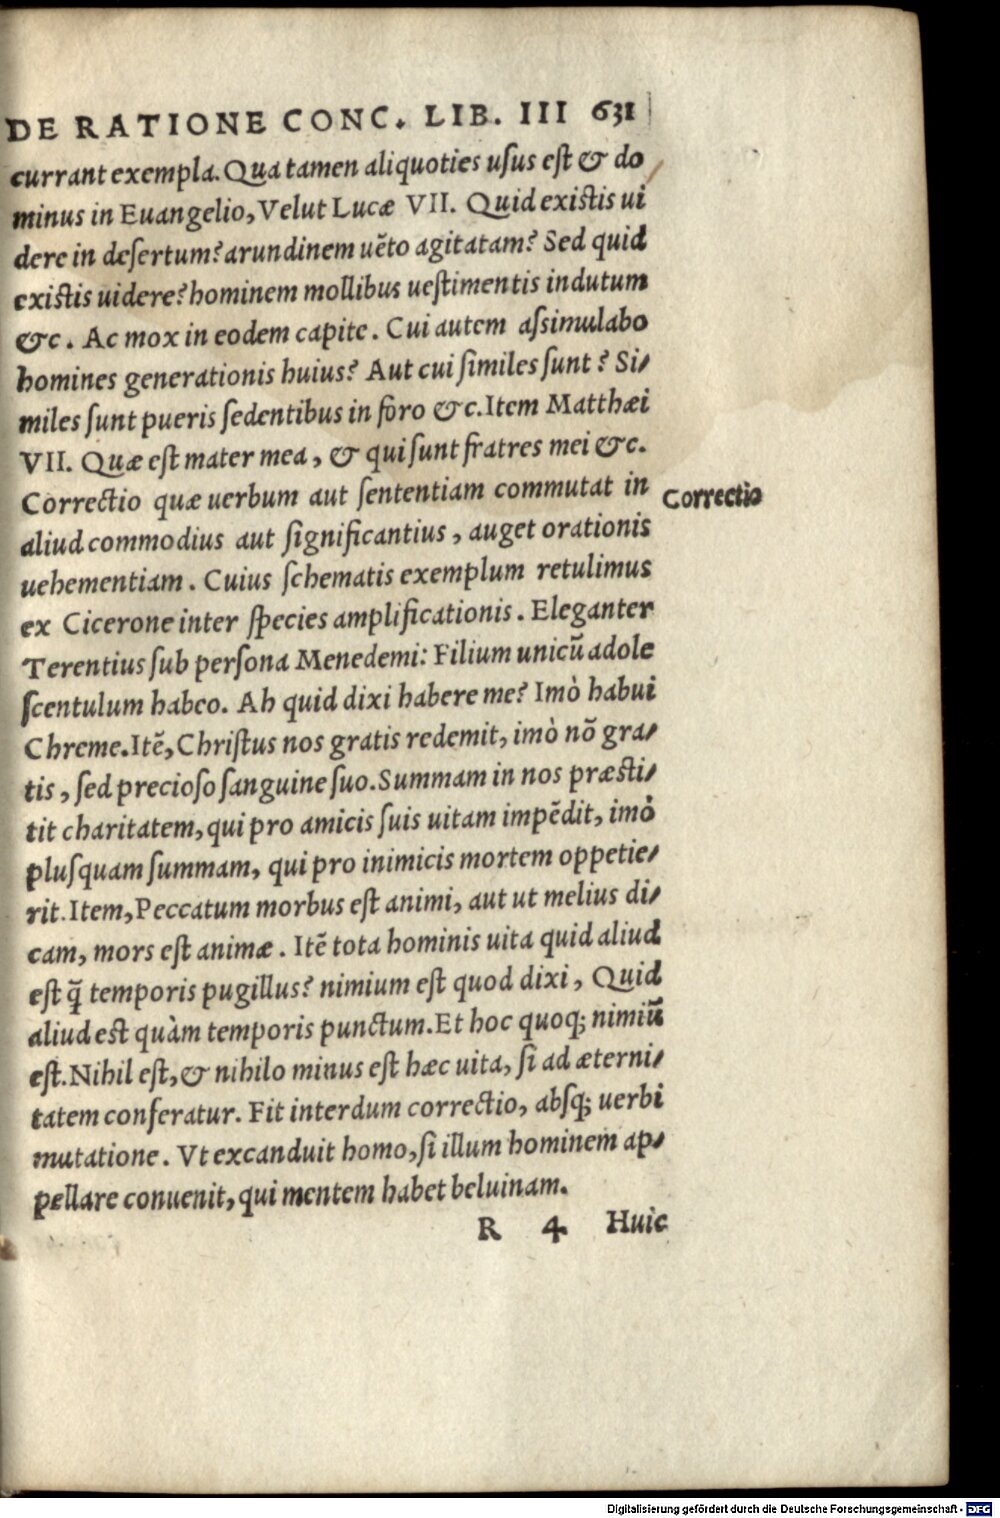 DE RATIONE CONC. LIB. III 631
currant exempla. Qua tamen aliquoties usus est & do
minus in Euangelio, Velut Lucæ VII. Quid existis ui
dere in desertum? arundinem uẽto agitatam? Sed quid
existis uidere? hominem mollibus uestimentis indutum
&c. Ac mox in eodem capite. Cui autem assimulabo
homines generationis huius? Aut cui similes sunt? Si⸗
miles sunt pueris sedentibus in foro &c. Item Matthæi
VII. Quæ est mater mea, & qui sunt fratres mei &c.
Correctio quæ uerbum aut sententiam commutat in
Correctio
aliud commodius aut significantius, auget orationis
uehementiam. Cuius schematis exemplum retulimus
ex Cicerone inter species amplificationis. Eleganter
Terentius sub persona Menedemi: Filium unicũ adole
scentulum habeo. Ah quid dixi habere me? Imò habui
Chreme. Itẽ, Christus nos gratis redemit, imò nõ gra⸗
tis, sed precioso sanguine suo. Summam in nos præsti⸗
tit charitatem, qui pro amicis suis uitam impẽdit, imò
plusquam summam, qui pro inimicis mortem oppetie⸗
rit. Item, Peccatum morbus est animi, aut ut melius di⸗
cam, mors est animæ. Itẽ tota hominis uita quid aliud
est q̃ temporis pugillus? nimium est quod dixi, Quid
aliud est quàm temporis punctum. Et hoc quoq; nimiũ
est. Nihil est, & nihilo minus est hæc uita, si ad æterni⸗
tatem conferatur. Fit interdum correctio, absq; uerbi
mutatione. Vt excanduit homo, si illum hominem ap⸗
pellare conuenit, qui mentem habet beluinam.
R 4 Huic
Digitalisierung gefördert durch die Deutsche Forschungsgemeinschaft - DFG